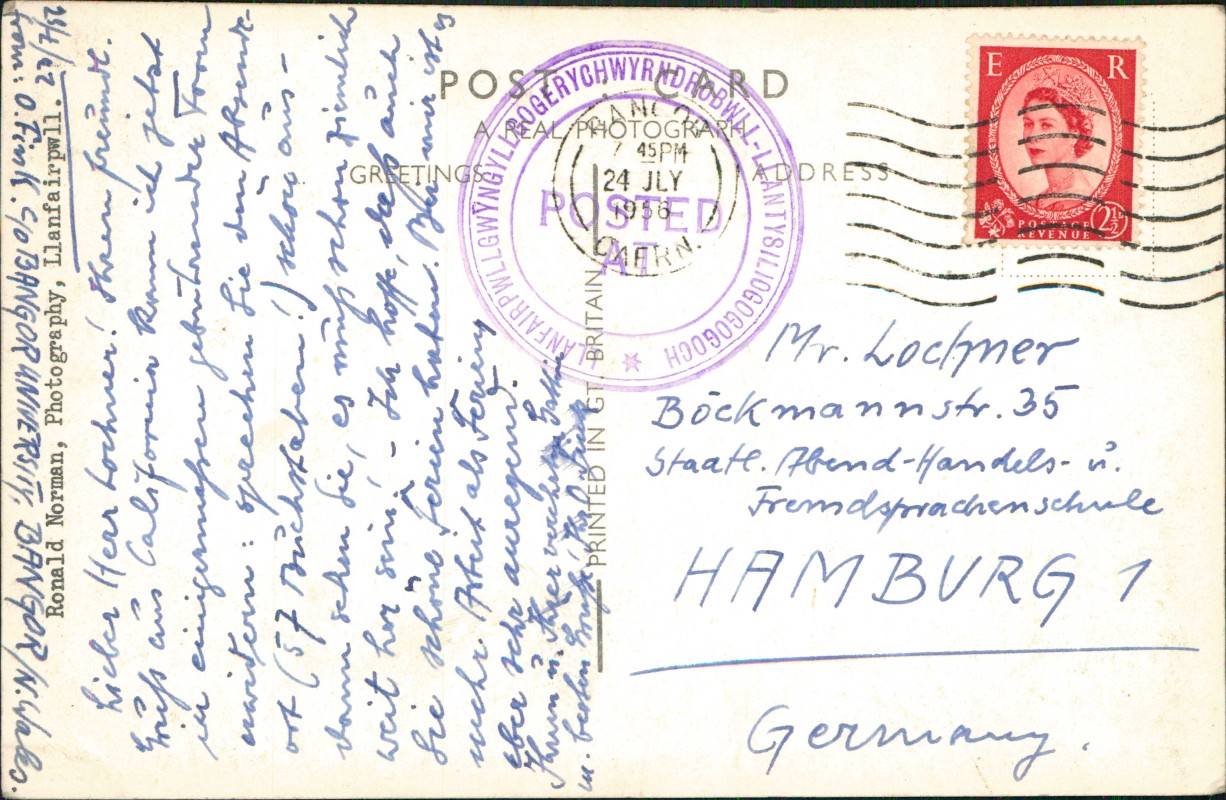 POST CARD
A REAL PHOTOGRAPH
GREETINGS
ADDRESS
LLANFAIRPWLLGWYNGYLLGOGERYCHWYRNDROBWLL-LLANTYSILIOGOGOGOCH
POSTED
AT
BANGOR
7 45PM
24 JLY
1956
CAERN.
E R
POSTAGE
REVENUE
2½
Mr. Lochner
Böckmannstr. 35
Staatl. Abend-Handels- u.
Fremdsprachenschule
HAMBURG 1
Germany.
PRINTED IN GT. BRITAIN
from: O. Fink. c/o BANGOR UNIVERSITY, BANGOR/N. Wales.
Ronald Norman, Photography, Llanfairpwll.
Lieber Herr Lochner! Ihren freundl.
Gruß aus Californie kann ich jetzt
in einigermassen gebührender Form
erwidern: sprechen Sie den Absende-
ort (57 Buchstaben!) schon aus -
dann sehen Sie, es muß schon ziemlich
weit her sein. - Ich hoffe, daß auch
Sie schöne Ferien haben. Bei mir ist es
mehr Arbeit als Ferien,
aber sehr anregend.
Ihnen u. Ihrer verehrten Gattin
m. besten Grüße, Ihr O. Fink